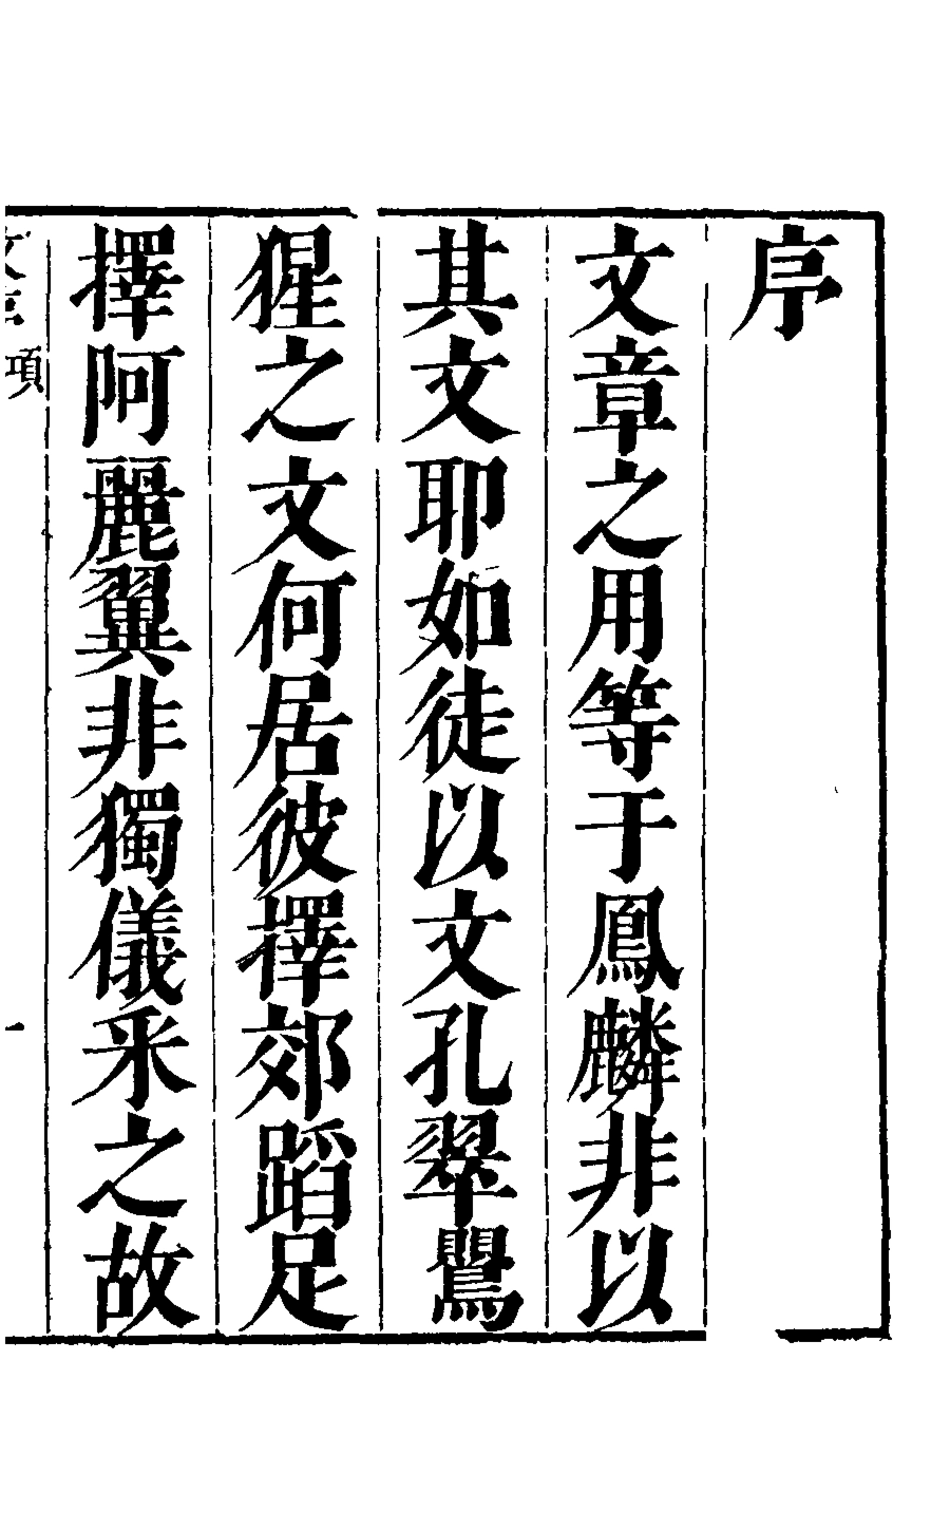 序
文章之用等于鳳麟非以
其文耶如徒以文孔翠鸎
猩之文何居彼擇郊蹈足
擇阿麗翼非獨儀釆之故
項
一